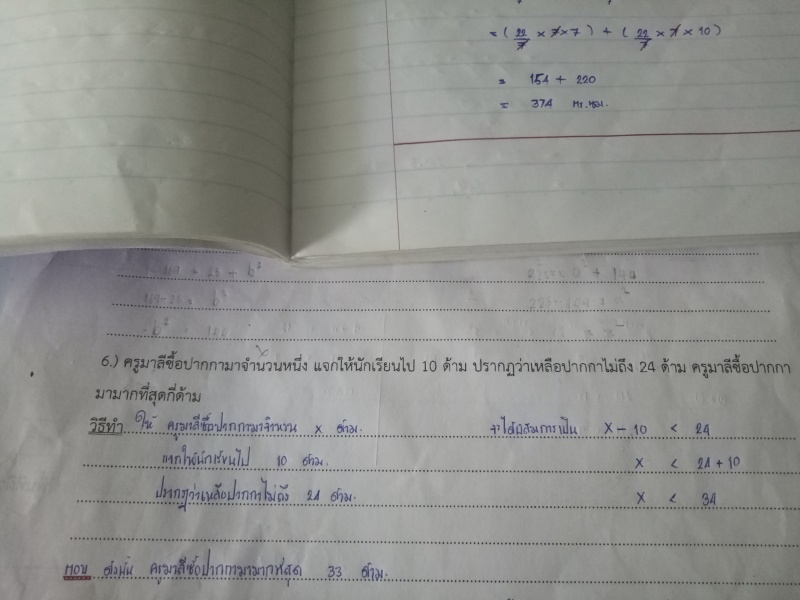 = ( 22/7 × 7 × 7 ) + ( 22/7 × 7 × 10 )
= 154 + 220
= 374 ตร.ซม.
169 - 25 = b²
6.) ครูมาลีซื้อปากกามาจำนวนหนึ่ง แจกให้นักเรียนไป 10 ด้าม ปรากฏว่าเหลือปากกาไม่ถึง 24 ด้าม ครูมาลีซื้อปากกา
มามากที่สุดกี่ด้าม
วิธีทำ ให้ ครูมาลีซื้อปากกามาจำนวน x ด้าม จะได้อสมการเป็น x - 10 < 24
แจกให้นักเรียนไป 10 ด้าม x < 24 + 10
ปรากฏว่าเหลือปากกาไม่ถึง 24 ด้าม x < 34
ตอบ ดังนั้น ครูมาลีซื้อปากกามามากที่สุด 33 ด้าม